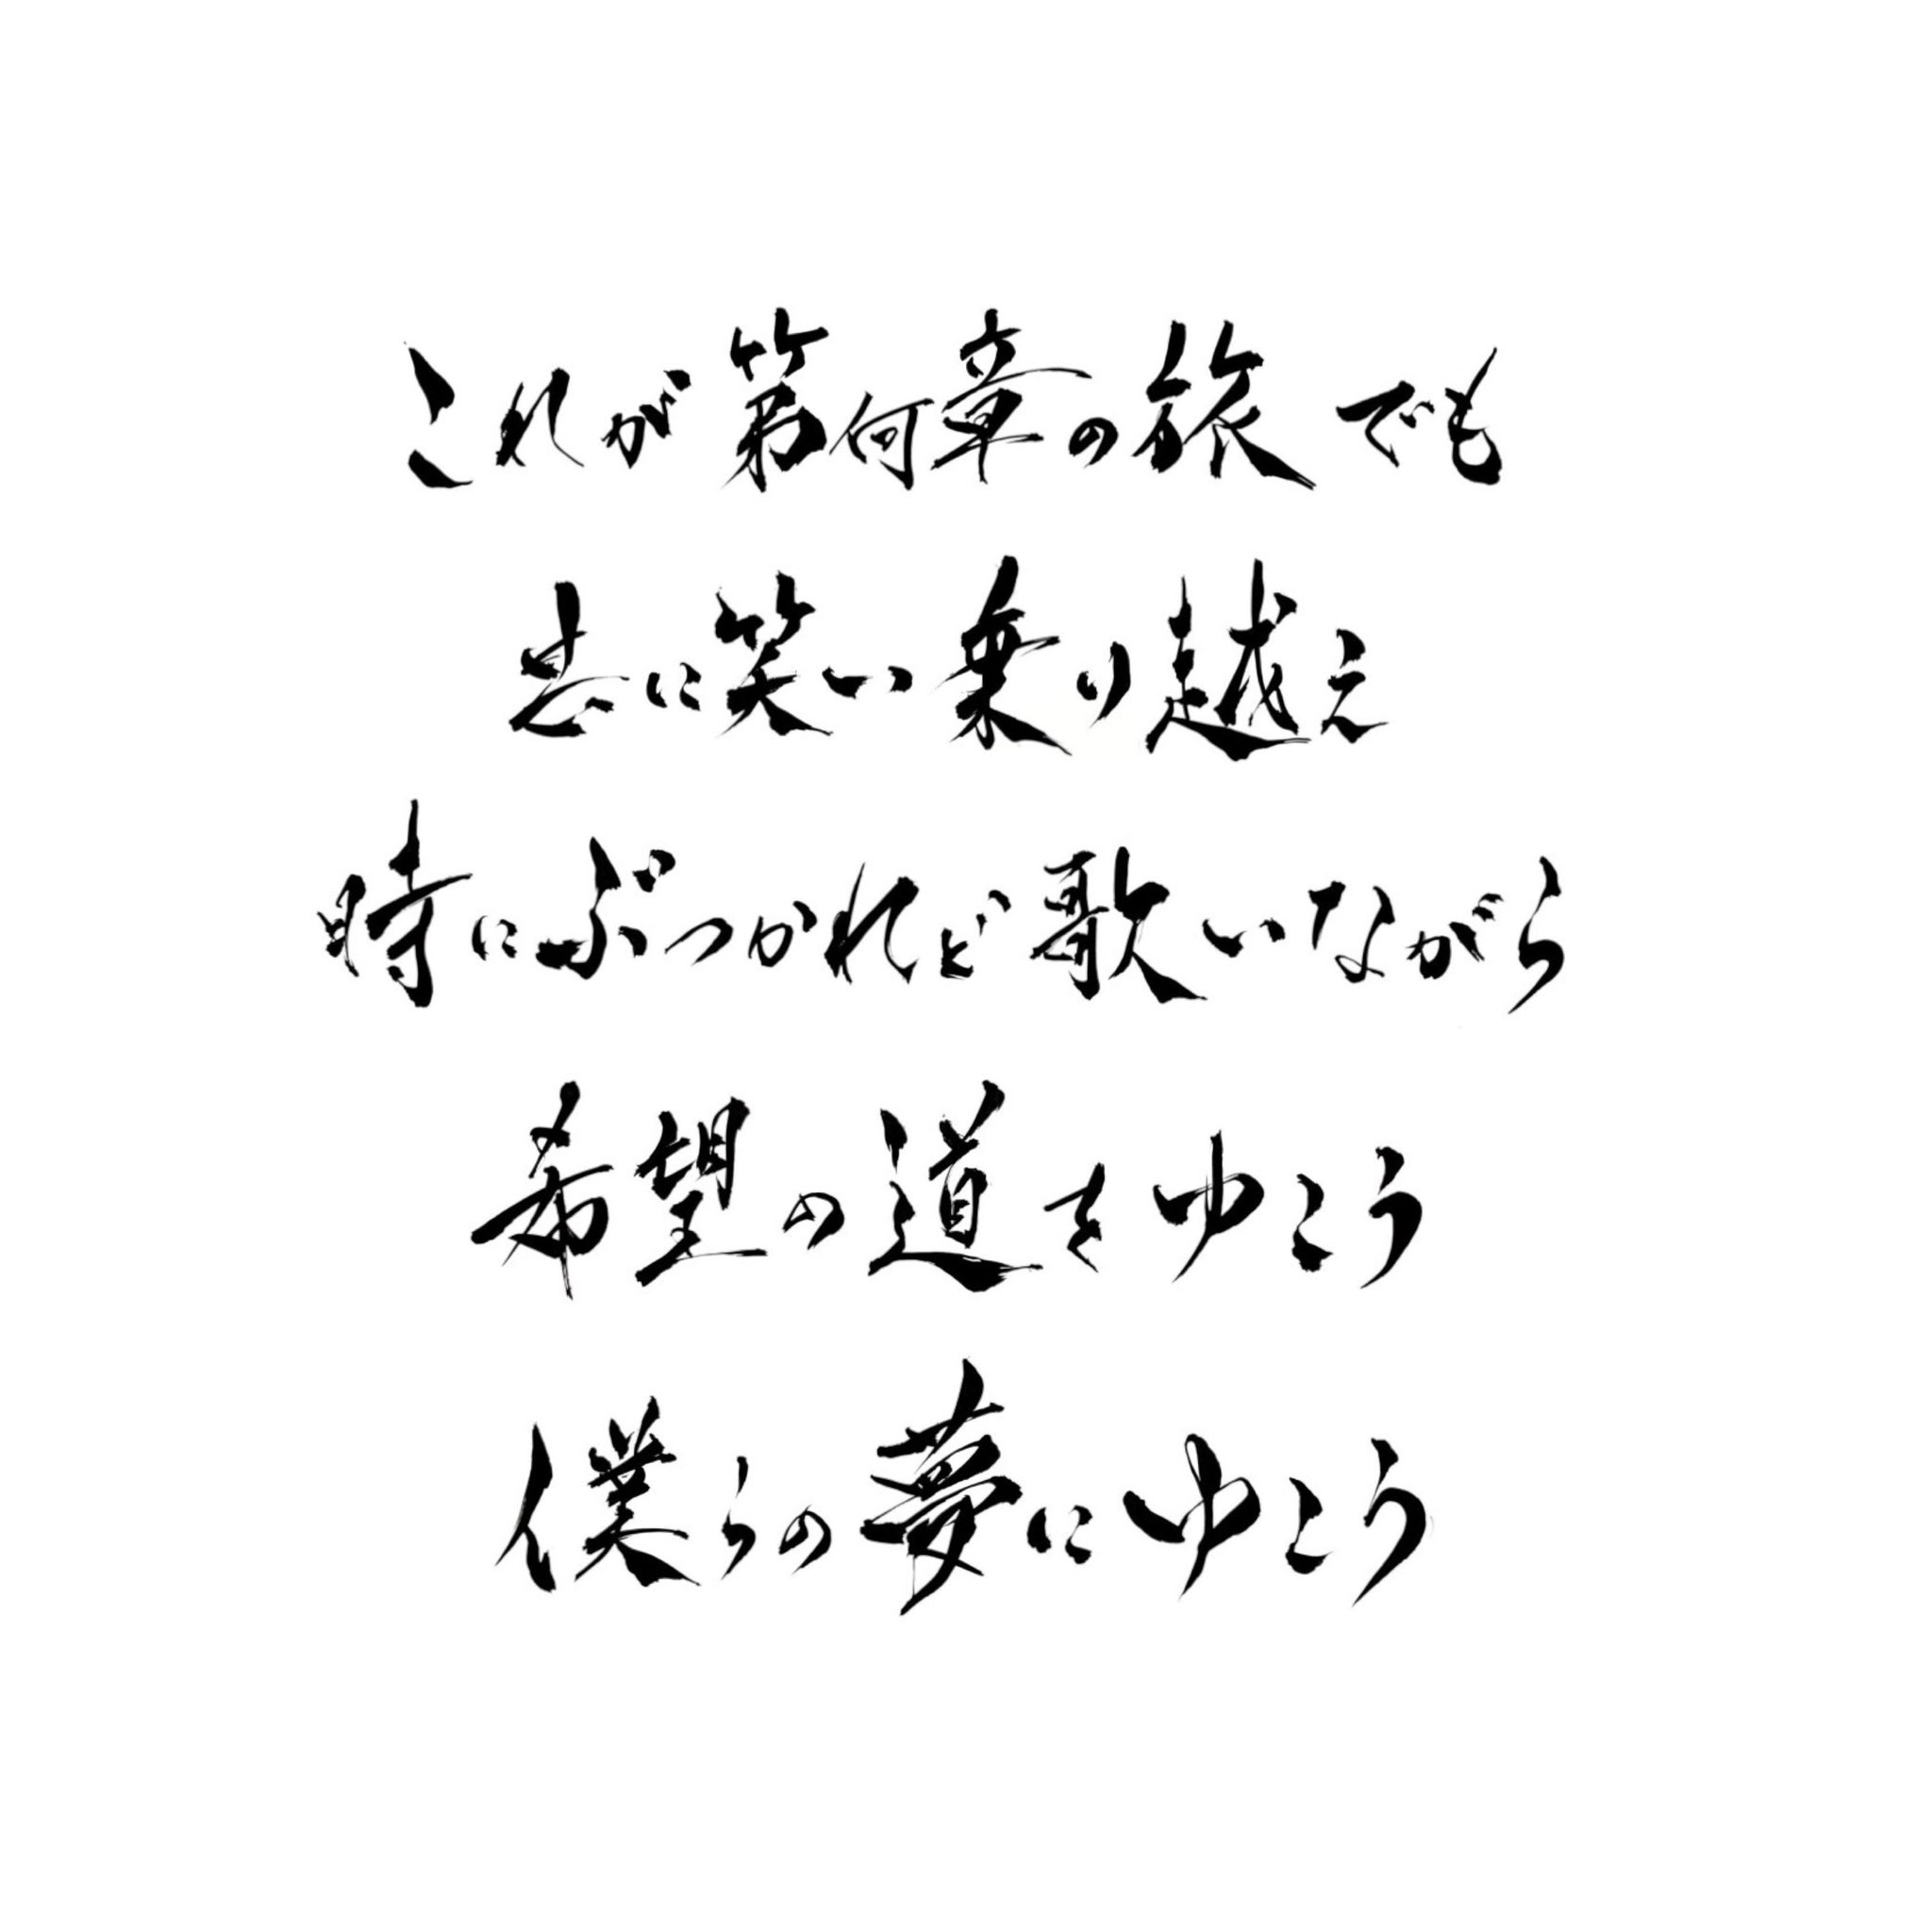 これが第何章の旅でも
共に笑い乗り越え
時にぶつかれど歌いながら
希望の道をゆこう
僕らの夢にゆこう